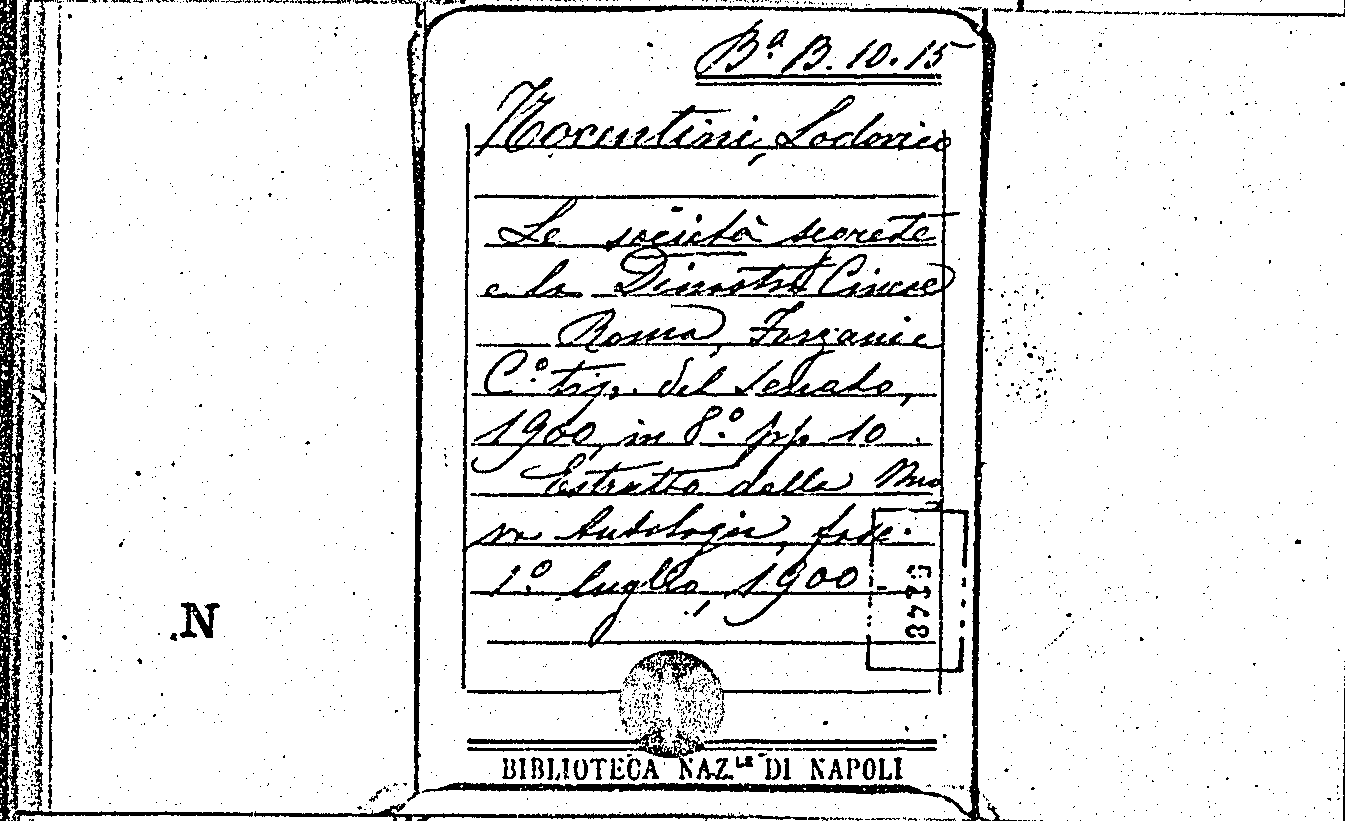 Bª B. 10. 15
Nocentini, Lodovico
Le società secrete
e la Dinastia Cinese
Roma, Forzani e
C.º tip. del Senato,
1900, in 8.º pp. 10.
Estratto dalla Nuo
va Antologia, fasc.
1.º luglio, 1900
N
BIBLIOTECA NAZ.LE DI NAPOLI